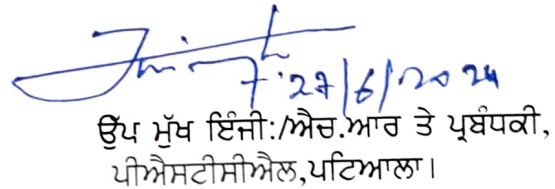 27/6/2024
ਉੱਪ ਮੁੱਖ ਇੰਜੀ:/ਐਚ.ਆਰ ਤੇ ਪ੍ਰਬੰਧਕੀ,
ਪੀਐਸਟੀਸੀਐਲ,ਪਟਿਆਲਾ।